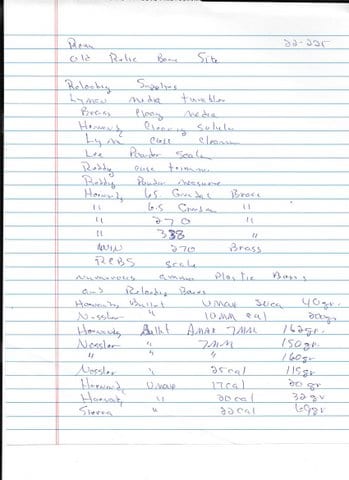 22-225
Old Relic Base Site
Reloading Supplies
Lyman media tumbler
Brass Cleaning media
Hornady Cleaning Solution
Lyman Case Cleaner
Lee Powder Scale
Redding case trimmer
Redding Powder measure
Hornady 6.5 Grendel Brass
" 6.5 Creedm "
" 270 "
" 338 "
WIN 270 Brass
RCBS scale
numerous ammo Plastic Boxes
and Reloading Boxes
Hornady Bullet VMAX 20ca 40gr.
Nossler " 10MM cal 200gr
Hornady Bullet AMAX 7MM 162gr.
Nossler " 7MM 150gr
" " 160gr
Nossler " 25cal 115gr
Hornady VMAX 17cal 20gr
Hornady " 20cal 32gr
Sierra " 22cal 69gr